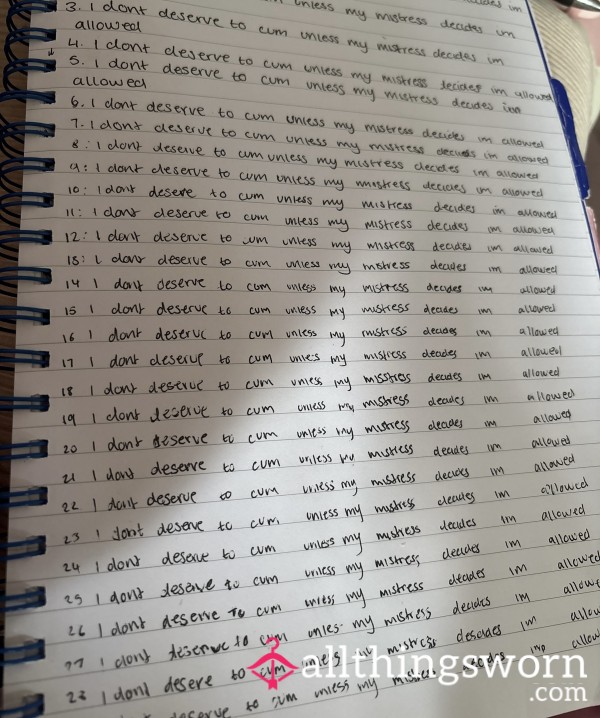 decides im
3. I dont deserve to cum unless my mistress decides im
allowed
4. I dont deserve to cum unless my mistress decides im
5. I dont deserve to cum unless my mistress decides im allowed
allowed
6. I dont deserve to cum unless my mistress decides im allowed
7. I dont deserve to cum unless my mistress decides im allowed
8: I dont deserve to cum unless my mistress decides im allowed
9: I dont deserve to cum unless my mistress decides im allowed
10: I dont desere to cum unless my mistress decides im allowed
11: I dont deserve to cum unless my mistress decides im allowed
12: I dont deserve to cum unless my mistress decides im allowed
13: I dont deserve to cum unless my mistress decides im allowed
14 I dont deserve to cum unless my mistress decides im allowed
15 I dont deserve to cum unless my mistress decides im allowed
16 I dont deserve to cum unless my mistress decides im allowed
17 I dont deserve to cum unless my mistress decides im allowed
18 I dont deserve to cum unless my misstress decides im allowed
19 I dont deserve to cum unless my mistress decides im allowed
20 I dont deserve to cum unless my mistress decides im allowed
21 I dont deserve to cum unless my mistress decides im allowed
22 I dont deserve to cum unless my mistress decides im allowed
23 I dont deserve to cum unless my mistress decides im allowed
24 I dont deserve to cum unless my mistress decides im allowed
25 I dont deserve to cum unless my mistress decides im allowed
26 I dont deserve to cum unless my mistress decides im allowed
27 I dont deserve to cum unless my mistress decides im allowed
28 I dont desere to cum unless my mistress im
to cum unless my
allthingsworn
.com